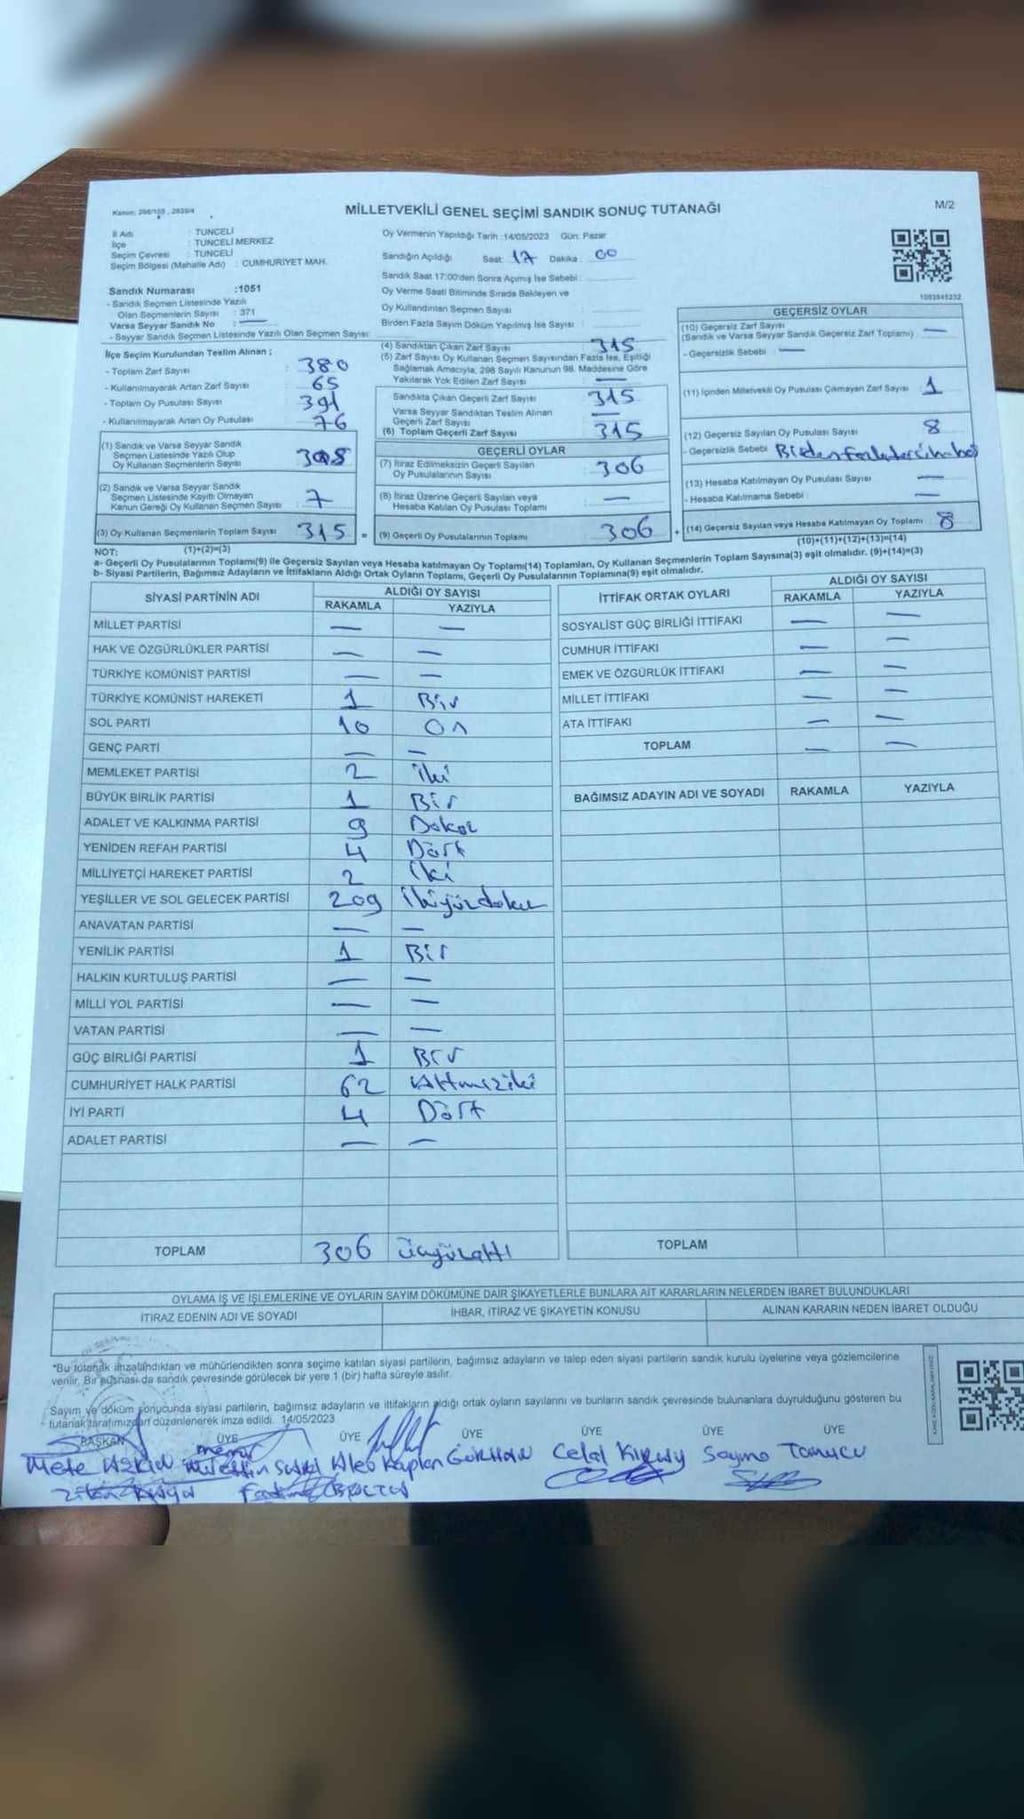 Kanun: 298/105 , 2839/4
MİLLETVEKİLİ GENEL SEÇİMİ SANDIK SONUÇ TUTANAĞI
M/2
İl Adı : TUNCELİ
İlçe : TUNCELİ MERKEZ
Seçim Çevresi : TUNCELİ
Seçim Bölgesi (Mahalle Adı) : CUMHURİYET MAH.
Sandık Numarası :1051
- Sandık Seçmen Listesinde Yazılı
Olan Seçmenlerin Sayısı : 371
Varsa Seyyar Sandık No : —
- Seyyar Sandık Seçmen Listesinde Yazılı Olan Seçmen Sayısı:
Oy Vermenin Yapıldığı Tarih :14/05/2023 Gün: Pazar
Sandığın Açıldığı Saat: 17 Dakika: 00
Sandık Saat 17:00'den Sonra Açılmış İse Sebebi :
Oy Verme Saati Bitiminde Sırada Bekleyen ve
Oy Kullandırılan Seçmen Sayısı :
Birden Fazla Sayım Döküm Yapılmış İse Sayısı :
1003845232
İlçe Seçim Kurulundan Teslim Alınan ;
- Toplam Zarf Sayısı : 380
- Kullanılmayarak Artan Zarf Sayısı : 65
- Toplam Oy Pusulası Sayısı : 391
- Kullanılmayarak Artan Oy Pusulası : 76
(1) Sandık ve Varsa Seyyar Sandık
Seçmen Listesinde Yazılı Olup
Oy Kullanan Seçmenlerin Sayısı : 308
(2) Sandık ve Varsa Seyyar Sandık
Seçmen Listesinde Kayıtlı Olmayan
Kanun Gereği Oy Kullanan Seçmen Sayısı : 7
(3) Oy Kullanan Seçmenlerin Toplam Sayısı : 315 =
(1)+(2)=(3)
(4) Sandıktan Çıkan Zarf Sayısı : 315
(5) Zarf Sayısı Oy Kullanan Seçmen Sayısından Fazla İse, Eşitliği
Sağlamak Amacıyla, 298 Sayılı Kanunun 98. Maddesine Göre
Yakılarak Yok Edilen Zarf Sayısı : —
Sandıkta Çıkan Geçerli Zarf Sayısı : 315
Varsa Seyyar Sandıktan Teslim Alınan
Geçerli Zarf Sayısı : —
(6) Toplam Geçerli Zarf Sayısı : 315
GEÇERLİ OYLAR
(7) İtiraz Edilmeksizin Geçerli Sayılan
Oy Pusulalarının Sayısı : 306
(8) İtiraz Üzerine Geçerli Sayılan veya
Hesaba Katılan Oy Pusulası Toplamı : —
(9) Geçerli Oy Pusulalarının Toplamı : 306 +
GEÇERSİZ OYLAR
(10) Geçersiz Zarf Sayısı
(Sandık ve Varsa Seyyar Sandık Geçersiz Zarf Toplamı) : —
- Geçersizlik Sebebi : —
(11) İçinden Milletvekili Oy Pusulası Çıkmayan Zarf Sayısı : 1
(12) Geçersiz Sayılan Oy Pusulası Sayısı : 8
- Geçersizlik Sebebi :
(13) Hesaba Katılmayan Oy Pusulası Sayısı : —
- Hesaba Katılmama Sebebi : —
(14) Geçersiz Sayılan veya Hesaba Katılmayan Oy Toplamı : 8
(10)+(11)+(12)+(13)=(14)
NOT:
a- Geçerli Oy Pusulalarının Toplamı(9) ile Geçersiz Sayılan veya Hesaba katılmayan Oy Toplamı(14) Toplamları, Oy Kullanan Seçmenlerin Toplam Sayısına(3) eşit olmalıdır. (9)+(14)=(3)
b- Siyasi Partilerin, Bağımsız Adayların ve İttifakların Aldığı Ortak Oyların Toplamı, Geçerli Oy Pusulalarının Toplamına(9) eşit olmalıdır.
SİYASİ PARTİNİN ADI ALDIĞI OY SAYISI
RAKAMLA YAZIYLA
MİLLET PARTİSİ — —
HAK VE ÖZGÜRLÜKLER PARTİSİ — —
TÜRKİYE KOMÜNİST PARTİSİ — —
TÜRKİYE KOMÜNİST HAREKETİ 1 Bir
SOL PARTİ 10 On
GENÇ PARTİ — —
MEMLEKET PARTİSİ 2 iki
BÜYÜK BİRLİK PARTİSİ 1 Bir
ADALET VE KALKINMA PARTİSİ 9 Dokuz
YENİDEN REFAH PARTİSİ 4 Dört
MİLLİYETÇİ HAREKET PARTİSİ 2 iki
YEŞİLLER VE SOL GELECEK PARTİSİ 209 ikiyüzdokuz
ANAVATAN PARTİSİ — —
YENİLİK PARTİSİ 1 Bir
HALKIN KURTULUŞ PARTİSİ — —
MİLLİ YOL PARTİSİ — —
VATAN PARTİSİ — —
GÜÇ BİRLİĞİ PARTİSİ 1 Bir
CUMHURİYET HALK PARTİSİ 62 Altmışiki
İYİ PARTİ 4 Dört
ADALET PARTİSİ — —
TOPLAM 306 üçyüzaltı
İTTİFAK ORTAK OYLARI ALDIĞI OY SAYISI
RAKAMLA YAZIYLA
SOSYALİST GÜÇ BİRLİĞİ İTTİFAKI — —
CUMHUR İTTİFAKI — —
EMEK VE ÖZGÜRLÜK İTTİFAKI — —
MİLLET İTTİFAKI — —
ATA İTTİFAKI — —
TOPLAM — —
BAĞIMSIZ ADAYIN ADI VE SOYADI RAKAMLA YAZIYLA
TOPLAM
OYLAMA İŞ VE İŞLEMLERİNE VE OYLARIN SAYIM DÖKÜMÜNE DAİR ŞİKAYETLERLE BUNLARA AİT KARARLARIN NELERDEN İBARET BULUNDUKLARI
İTİRAZ EDENİN ADI VE SOYADI İHBAR, İTİRAZ VE ŞİKAYETİN KONUSU ALINAN KARARIN NEDEN İBARET OLDUĞU
"Bu tutanak imzalandıktan ve mühürlendikten sonra seçime katılan siyasi partilerin, bağımsız adayların ve talep eden siyasi partilerin sandık kurulu üyelerine veya gözlemcilerine
verilir. Bir nüshası da sandık çevresinde görülecek bir yere 1 (bir) hafta süreyle asılır.
Sayım ve döküm sonucunda siyasi partilerin, bağımsız adayların ve ittifakların aldığı ortak oyların sayılarını ve bunların sandık çevresinde bulunanlara duyrulduğunu gösteren bu
tutanak tarafımızdan düzenlenerek imza edildi. 14/05/2023
BAŞKAN ÜYE ÜYE ÜYE ÜYE ÜYE ÜYE
Kaplan GÜRHAN Celal